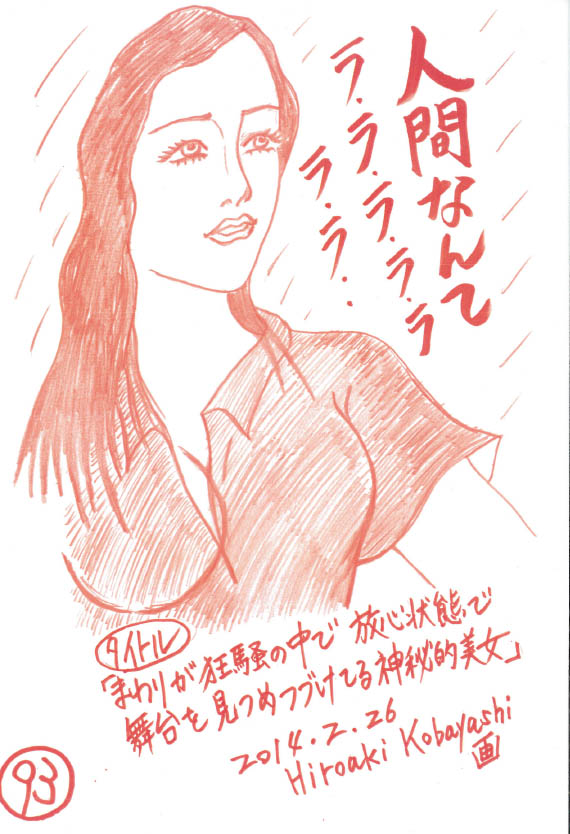 人間なんて
ラ・ラ・ラ・ラ・ラ
ラ・ラ・・
タイトル
「まわりが狂騒の中で 放心状態で
舞台を見つめつづけてる神秘的美女」
2014.2.26
Hiroaki Kobayashi
画
93